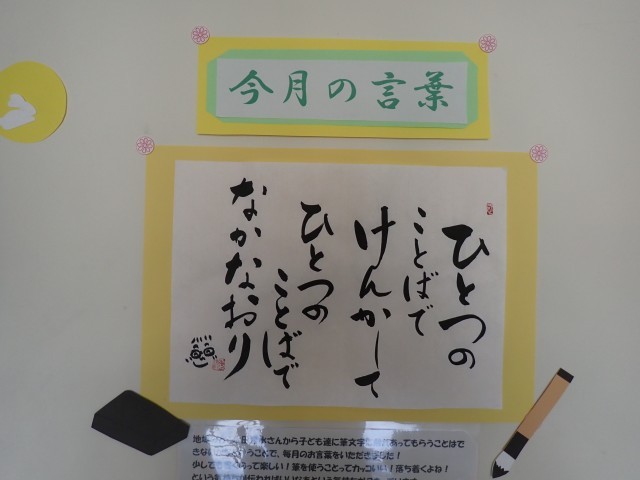 今月の言葉
ひとつの
ことばで
けんかして
ひとつの
ことばで
なかなおり
さんから子ども達に筆文字
あってもらうことはで
で、毎月のお言葉をいただきました!
って楽しい!筆を使うことってカッコいい!落ち着くよね!